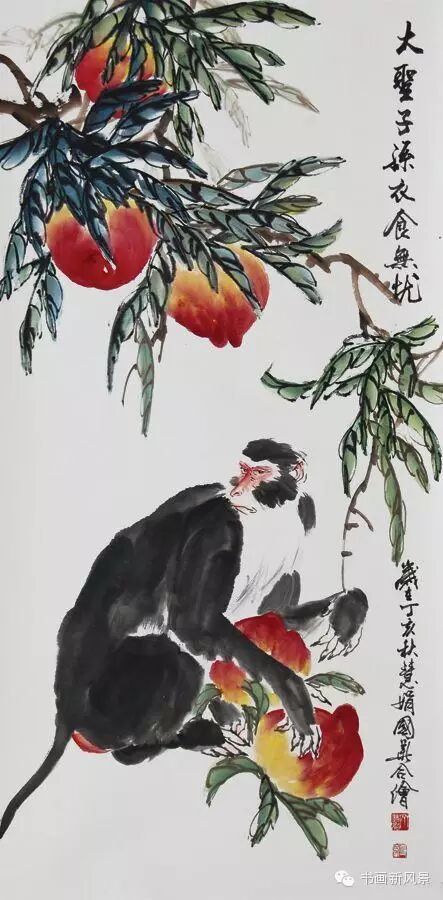 大聖子孫衣食無忧
歲在丁亥秋慧娟國華合繪
书画新风景